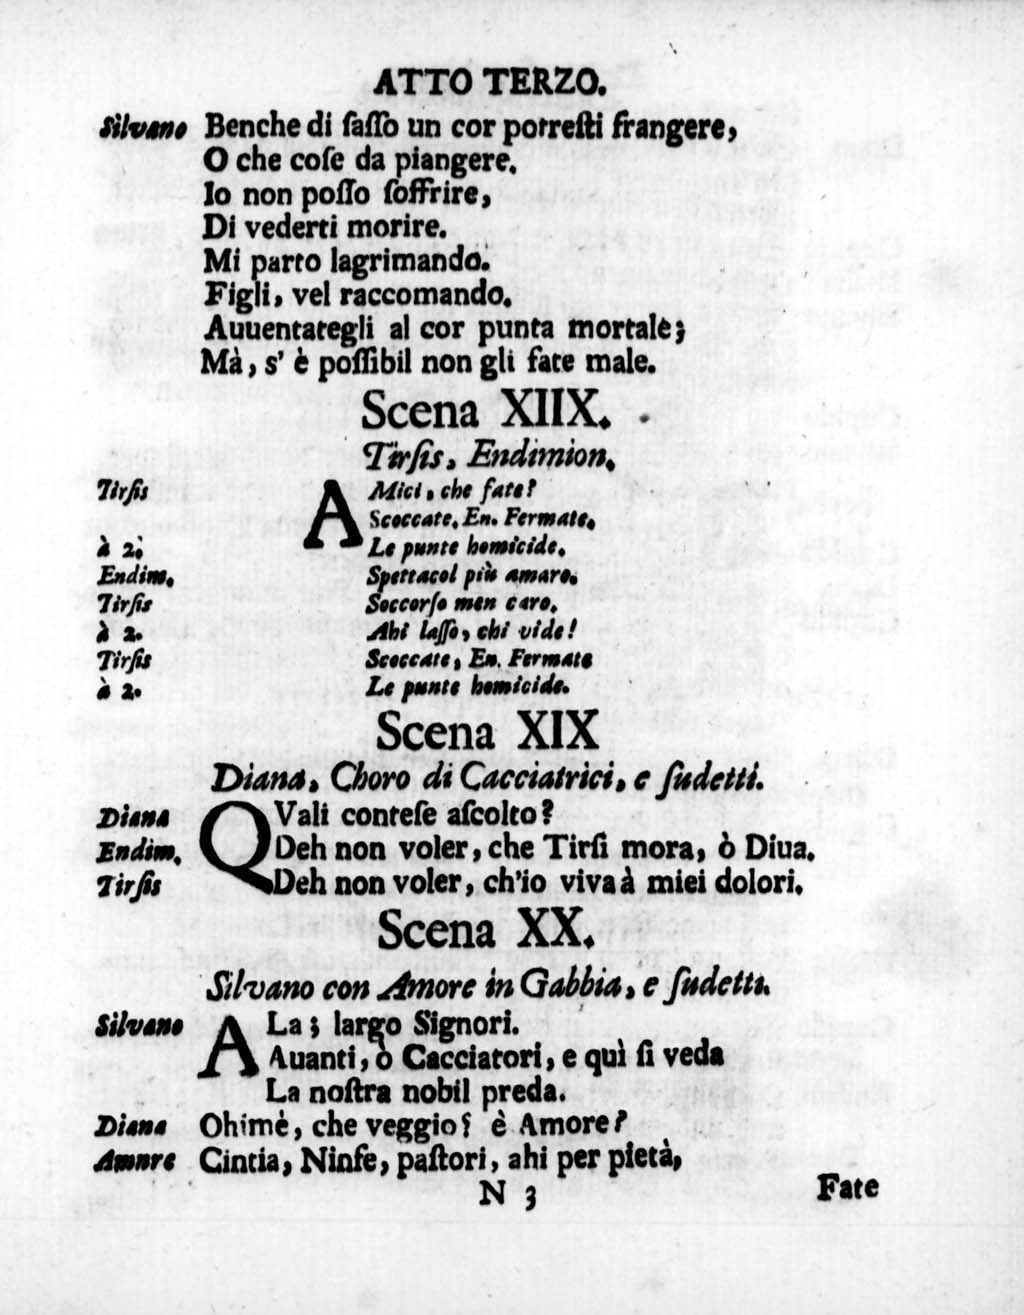 ATTO TERZO.
Silvano Benche di ſaſſo un cor potreſti frangere,
O che coſe da piangere.
Io non poſſo ſoffrire,
Di vederti morire.
Mi parto lagrimando.
Figli, vel raccomando.
Auuentategli al cor punta mortale;
Mà, s' è poſſibil non gli fate male.
Scena XIIX.
Tirſis, Endimion.
Tirſis AMici, che fate?
Scoccate. En. Fermate.
à 2. Le punte homicide.
Endim. Spettacol più amaro.
Tirſis Soccorſo men caro.
à 2. Ahi laſſo, chi vide!
Tirſis Scoccate, En. Fermate
à 2. Le punte homicide.
Scena XIX
Diana, Choro di Cacciatrici, e ſudetti.
Diana QVali conteſe aſcolto?
Endim. Deh non voler, che Tirſi mora, ò Diua.
Tirſis Deh non voler, ch'io viva à miei dolori.
Scena XX.
Silvano con Amore in Gabbia, e ſudetti.
Silvano ALa; largo Signori.
Auanti, ò Cacciatori, e quì ſi veda
La noſtra nobil preda.
Diana Ohimè, che veggio? è Amore?
Amnre Cintia, Ninfe, paſtori, ahi per pietà,
N 3 Fate